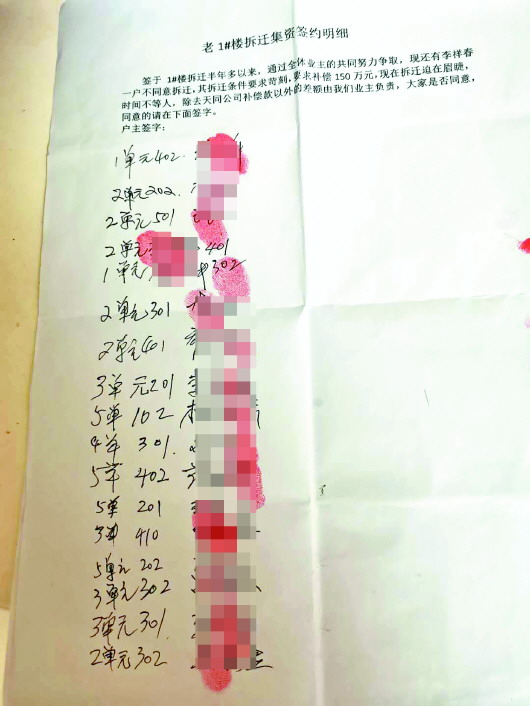 老 1#楼拆迁集资签约明细
鉴于 1#楼拆迁半年多以来，通过全体业主的共同努力争取，现还有李祥春
一户不同意拆迁，其拆迁条件要求苛刻，要求补偿 150 万元，现在拆迁迫在眉睫，
时间不等人，除去天同公司补偿款以外的差额由我们业主负责，大家是否同意，
同意的请在下面签字。
户主签字：
1单元402.
2单元202.
2单元501
2单元 401
1单元 302
2单元301
2单元401
3单元201
5单102
4单301.
5单402
5单201
3单410
5单元202
3单元302
3单元301.
2单元302